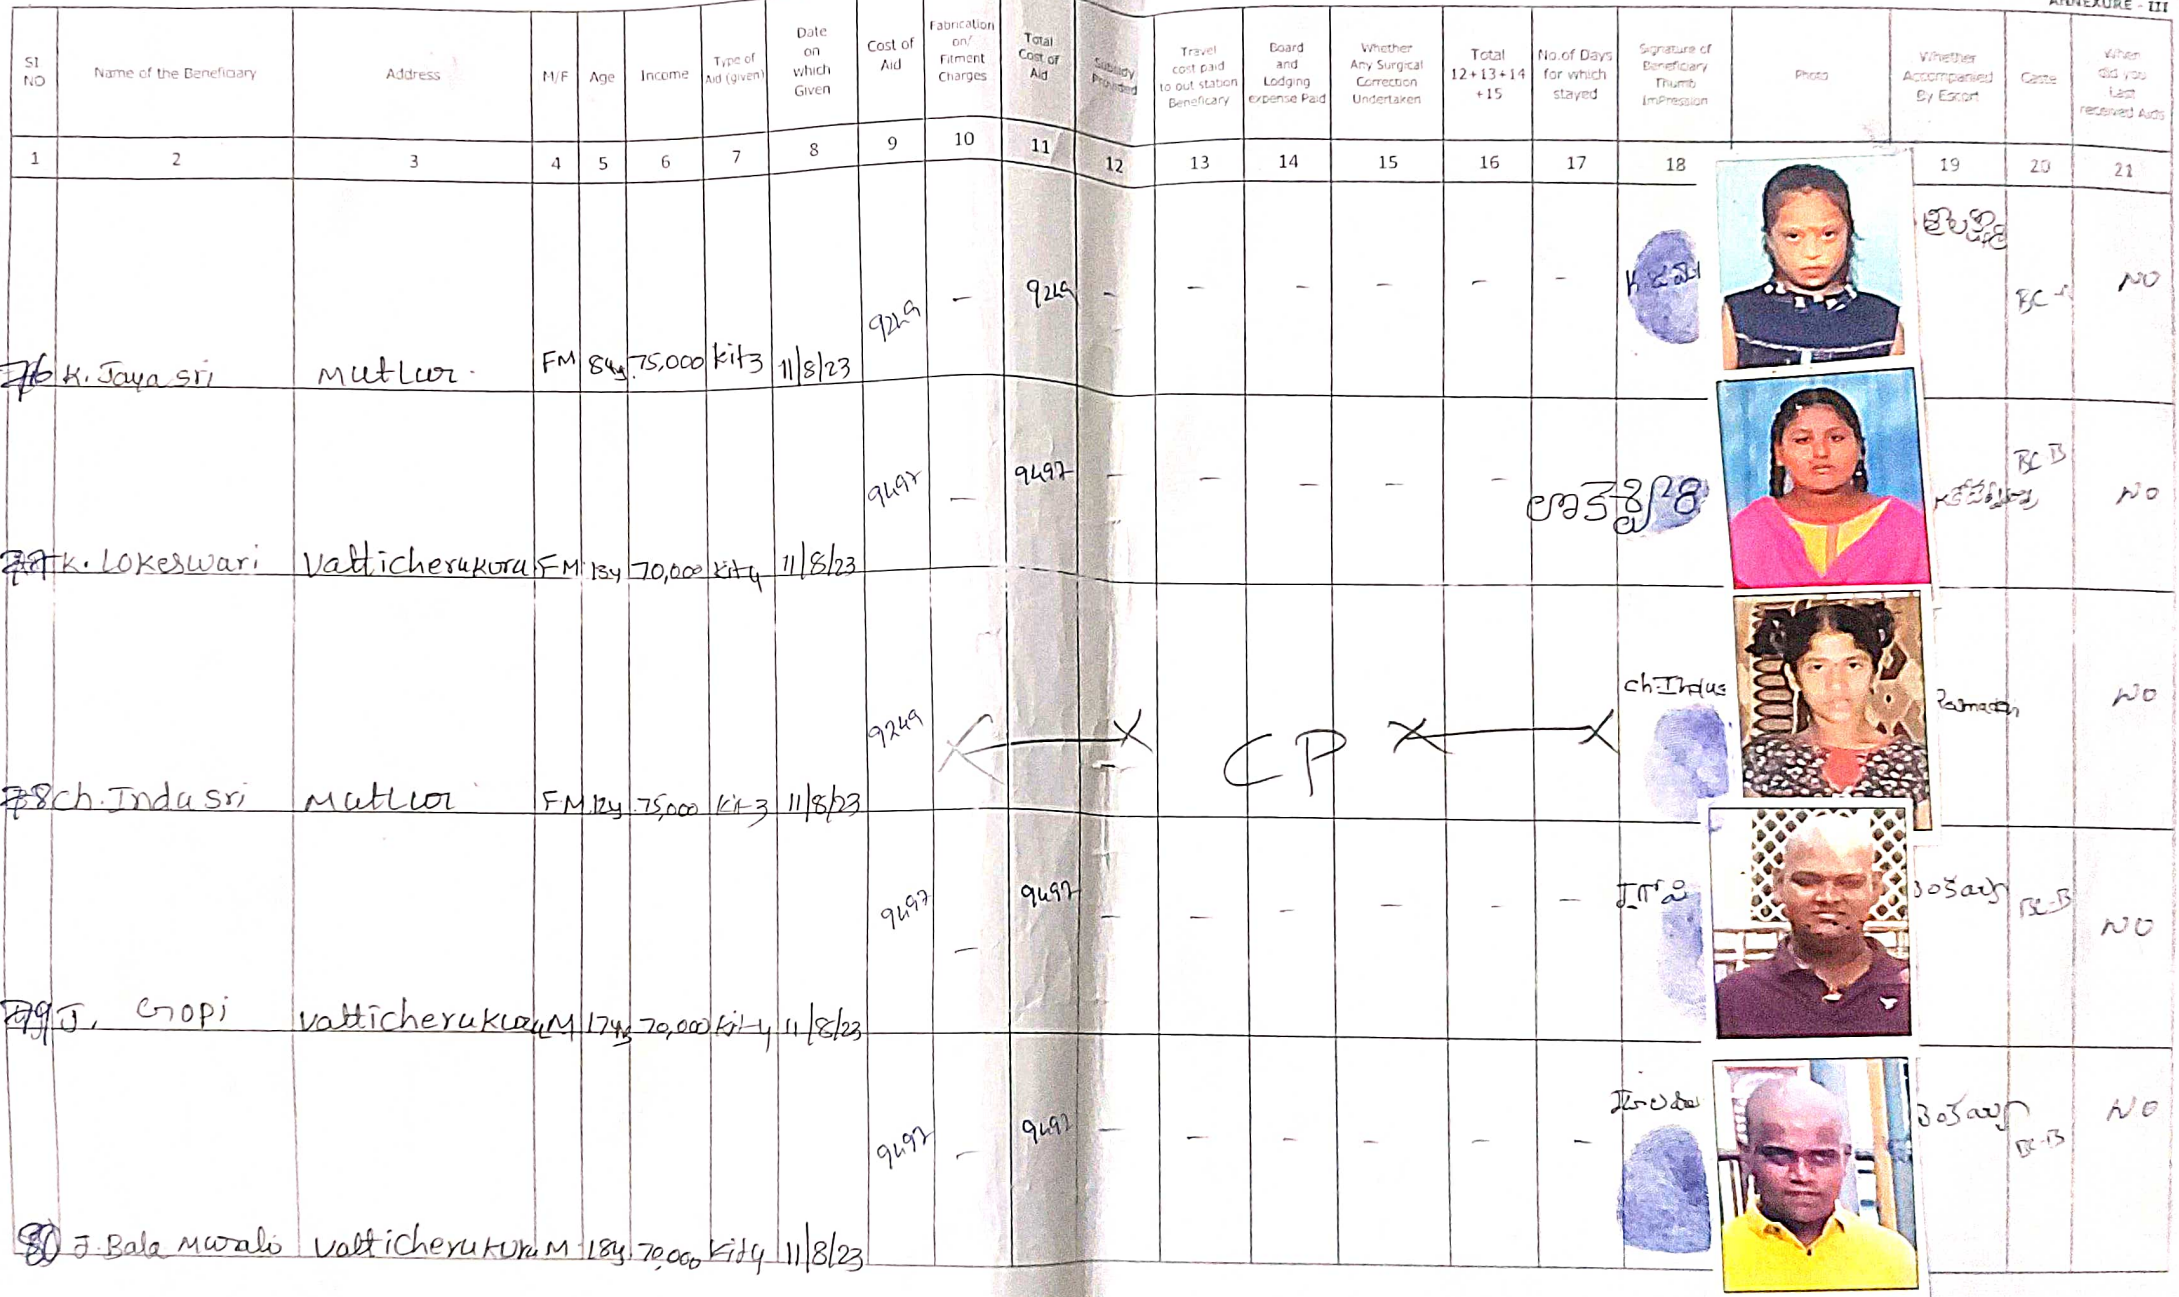 ANNEXURE - III
Sl NO Name of the Beneficiary Address M/F Age Income Type of Aid (given) Date on which Given Cost of Aid Fabrication on/ Fitment Charges Total Cost of Aid Subsidy Provided Travel cost paid to out station Beneficary Board and Lodging expense Paid Whether Any Surgical Correction Undertaken Total 12+13+14 +15 No.of Days for which stayed Signature of Beneficiary Thumb ImPression Photo Whether Accompanied By Escort Caste When did you Last received Aids
1 2 3 4 5 6 7 8 9 10 11 12 13 14 15 16 17 18 19 20 21
76 K. Jaya sri Mutlur FM 8y 75,000 Kit3 11/8/23 9249 - 9249 - - - - - - NO
77 K. Lokeswari Vatticherukuru FM 13y 70,000 Kit4 11/8/23 9497 - 9497 - - - - - BC-B NO
78 Ch. Indu Sri Mutlur FM 12y 75,000 Kit-3 11/8/23 9249 CP NO
79 J. Gopi Vatticherukuru M 17y 70,000 Kit-4 11/8/23 9497 - 9497 - - - - - - J.గోపి BC-B NO
80 J. Bala Murali Vatticherukuru M 18y 70,000 Kit4 11/8/23 9497 - 9497 - - - - - - BC-B NO